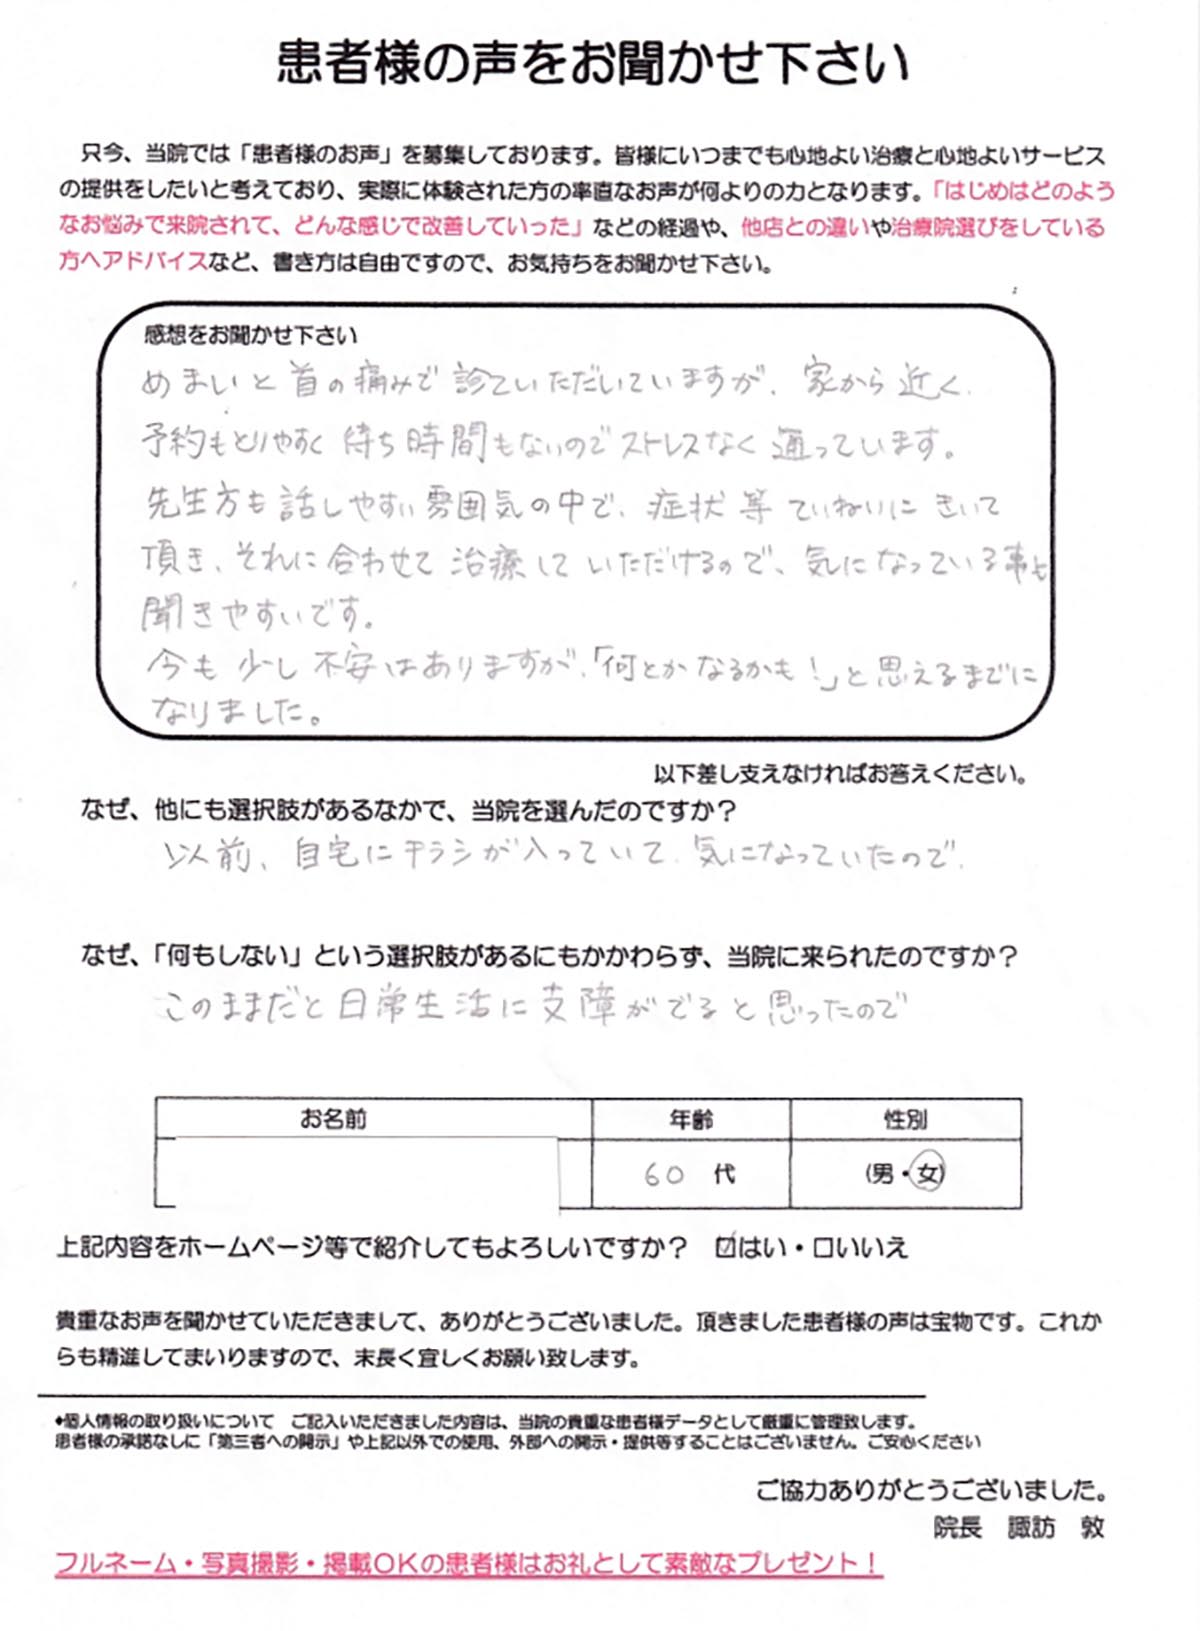 患者様の声をお聞かせ下さい
只今、当院では「患者様のお声」を募集しております。皆様にいつまでも心地よい治療と心地よいサービス
の提供をしたいと考えており、実際に体験された方の率直なお声が何よりの力となります。「はじめはどのよう
なお悩みで来院されて、どんな感じで改善していった」などの経過や、他店との違いや治療院選びをしている
方へアドバイスなど、書き方は自由ですので、お気持ちをお聞かせ下さい。
感想をお聞かせ下さい
めまいと首の痛みで診ていただいていますが、家から近く、
予約もとりやすく待ち時間もないのでストレスなく通っています。
先生方も話しやすい雰囲気の中で、症状等ていねいにきいて
頂き、それに合わせて治療していただけるので、気になっている事も
聞きやすいです。
今も少し不安はありますが、「何とかなるかも!」と思えるまでに
なりました。
以下差し支えなければお答えください。
なぜ、他にも選択肢があるなかで、当院を選んだのですか？
以前、自宅にチラシが入っていて、気になっていたので、
なぜ、「何もしない」という選択肢があるにもかかわらず、当院に来られたのですか？
このままだと日常生活に支障がでると思ったので
お名前 年齢 性別
60 代 (男・女)
上記内容をホームページ等で紹介してもよろしいですか？ ☑はい・□いいえ
貴重なお声を聞かせていただきまして、ありがとうございました。頂きました患者様の声は宝物です。これか
らも精進してまいりますので、末長く宜しくお願い致します。
♦個人情報の取り扱いについて ご記入いただきました内容は、当院の貴重な患者様データとして厳重に管理致します。
患者様の承諾なしに「第三者への開示」や上記以外での使用、外部への開示・提供等することはございません。ご安心ください
ご協力ありがとうございました。
院長 諏訪 敦
フルネーム・写真撮影・掲載OKの患者様はお礼として素敵なプレゼント！